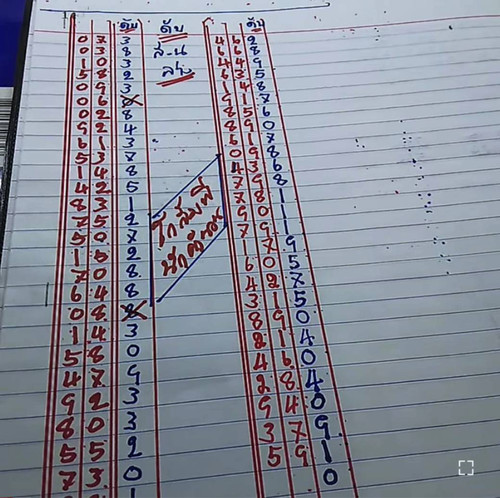 ดับ
0 7 3
0 3 8
1 0 3
5 8 2
0 9 3
0 6
0 2 8
9 2 4
6 1 3
5 3 7
1 4 8
4 2 5
8 3 1
7 5 2
5 0 7
1 5 2
7 0 8
6 4 8
0 8
1 4 3
5 8 0
4 7 9
9 2 3
8 0 3
5 5 2
7 3 0
ดับ
ส-น
ล่าง
ดับ
4 6 2
6 6 8
4 4 9
6 3 5
1 4 8
9 1 7
8 5 6
8 9 0
6 1 7
0 9 8
4 3 6
7 9 8
7 8 1
9 0 1
7 9 1
1 7 9
6 0 5
4 2 7
3 1 5
8 9 0
2 1 4
4 6 0
2 8 4
9 4 0
3 7 9
5 9 1
0